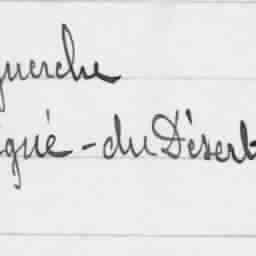 guerche
igné-du Désert